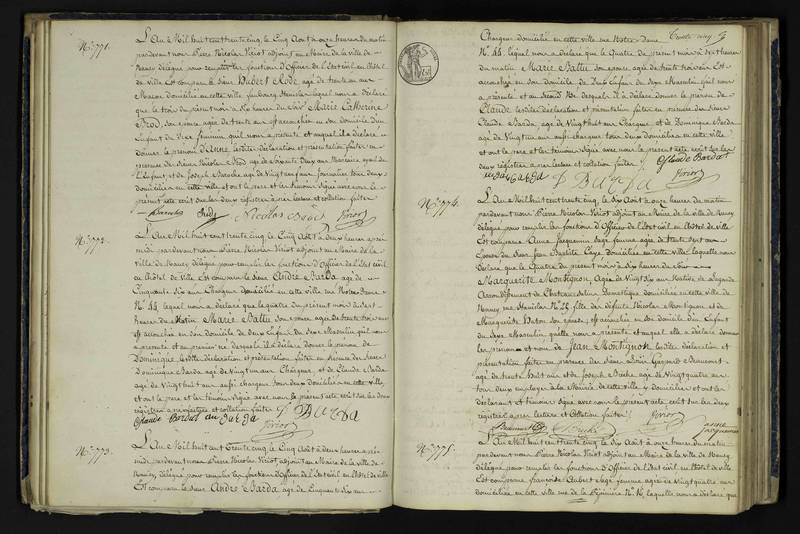 N.° 771.
L'An Mil huit cent trente cinq, le Cinq Août à onze heures du matin
pardevant nous Pierre Nicolas Viriot adjoint au Maire de la ville de
Nancy délégué pour remplir les fonctions d'Officier de l'Etat civil en l'hôtel
de ville Est comparu le Sieur Hubert Rode agé de trente un ans
Macon domicilié en cette ville faubourg Stanislas lequel nous a déclaré
que le trois du présent mois à dix heures du soir Marie Catherine
Brod, son épouse agée de trente ans est accouchée en son domicile d'un
Enfant du Sexe féminin qu'il nous a présenté et auquel il a déclaré
donner le prénom de Lesdites déclaration et présentation faites en
présence des Sieurs Nicolas Brod agé de soixante Deux ans
l'Enfant, et de Joseph agé de Vingt ans tous deux
domiciliés en cette ville et ont le père et les témoins signé avec nous le
présent acte écrit sur les deux registres après lecture et collation faites
Rode Nicolas Brod Viriot
N.° 772.
L'An Mil huit cent trente cinq le Cinq Août à deux heures après
midi pardevant nous Pierre Nicolas Viriot adjoint au Maire de la
ville de Nancy délégué pour remplir les fonctions d'Officier de l'Etat civil
en l'hôtel de Ville Est comparu le Sieur André Barda agé de
Cinquante six ans Chargeur domicilié en cette ville rue Notre Dame
N.° 44 lequel nous a déclaré que le quatre du présent mois à sept
heures du Matin Marie Ballu son épouse agée de trente trois ans
est accouchée en son domicile de deux Enfants du Sexe Masculin qu'il nous
a présenté et au premier né desquels il a déclaré donner le prénom de
Dominique lesdites déclaration et présentation faites en présence des Sieurs
Dominique Barda agé de Vingt un ans Chargeur, et de Claude Barda
agé de Vingt huit ans aussi chargeur tous deux domiciliés en cette ville
et ont le père et les témoins signé avec nous le présent acte écrit sur les deux
registres après lecture et collation faites D Barda
Claude Bardat Viriot
N.° 773.
L'An Mil huit Cent Trente Cinq le Cinq Août à deux heures après
midi pardevant nous Pierre Nicolas Viriot, adjoint au Maire de la ville de
Nancy, délégué pour remplir les fonctions d'Officier de l'Etat civil en l'hôtel de ville
Est comparu le Sieur André Barda agé de Cinquante Six ans
Chargeur domicilié en cette ville rue Notre Dame
N.° 44 lequel nous a déclaré que le Quatre du présent mois à sept heures
du matin Marie Ballu son épouse agée de trente trois ans Est
accouchée en son domicile de deux Enfants du Sexe Masculin qu'il nous
a présenté et au Second Né desquels il a déclaré donner le prénom de
Claude lesdites déclaration et présentation faites en présence des Sieurs
Claude Barda, agé de Vingt huit ans Chargeur et de Dominique Barda
agé de Vingt un ans aussi chargeur tous deux domiciliés en cette ville
et ont le père et les témoins Signé avec nous le présent acte écrit sur les
deux registres après lecture et collation faites Claude Bardat
D Barda Viriot
N.° 774.
L'An Mil huit cent trente cinq, le Six Août à onze heures du matin
pardevant nous Pierre Nicolas Viriot adjoint au Maire de la ville de Nancy
délégué pour remplir les fonctions d'Officier de l'Etat civil en l'hôtel de Ville
Est comparue Anne Jacquemin Sage femme agée de trente sept ans
Epouse du Sieur Jean Baptiste domiciliée en cette ville, laquelle nous
Déclare que le Quatre du présent mois à dix heures du Soir
Marguerite Montignon, Agée de Vingt Six ans Native de
Arrondissement de Chateausalins Domestique domiciliée en cette ville de
Nancy, rue Stanislas N.° fille des défunts Nicolas Montignon et de
Marguerite est accouchée en son domicile d'un Enfant
du Sexe Masculin qu'elle nous a présenté et auquel elle a déclaré donner
les prénom et nom de Jean Montignon lesdites déclaration et
présentation faites en présence des Sieurs
agé de trente huit ans et de Joseph agé de Vingt quatre ans
tous deux employés à la Mairie de cette ville y domiciliés et ont les
déclarant et témoins signé avec nous le présent acte écrit sur les deux
registres après lecture et Collation faites Viriot anne
jacquemin
N.° 775.
L'An Mil huit Cent trente cinq, le Six Août à onze heures du matin
pardevant nous Pierre Nicolas Viriot, adjoint au Maire de la ville de Nancy
délégué pour remplir les fonctions d'Officier de l'Etat civil en l'hôtel de ville
Est comparue françoise Aubert Sage femme agée de Vingt quatre ans
domiciliée en cette ville rue de la Pépinière N.° 16, laquelle nous a déclaré que